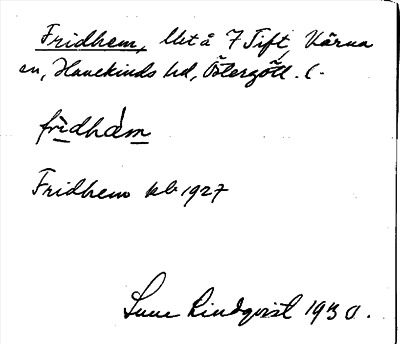 Fridhem, lht å 7 Tift, Värna
sn, Hanekinds hd, Östergötl. (-
frìdhäm
Fridhem kb 1927
Sune Lindqvist 1930.